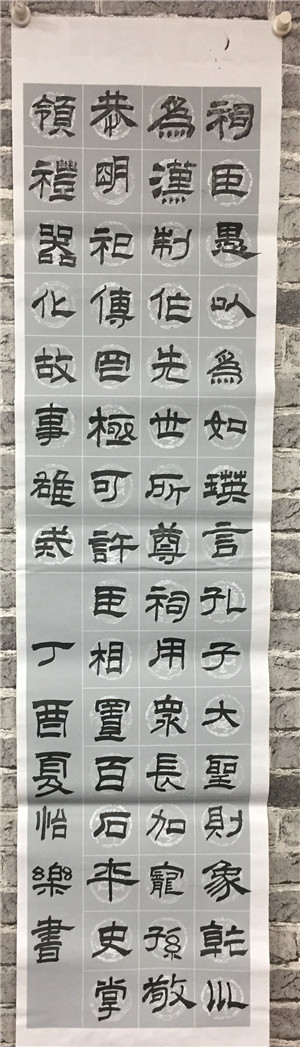 祠臣愚以為如瑛言孔子大聖則象乾川
為漢制作先世所尊祠用眾長加寵孫敬
恭明祀傳罔極可許臣相置百石卒史掌
領禮器化故事雄戒
丁酉夏怡樂書